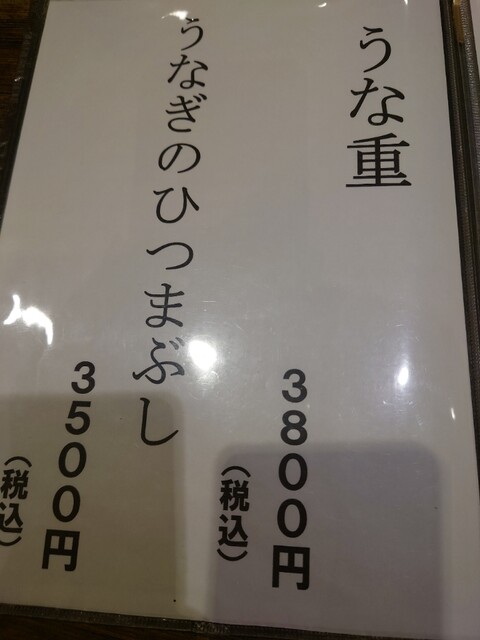 うな重
3800円
(税込)
うなぎのひつまぶし
3500円
(税込)